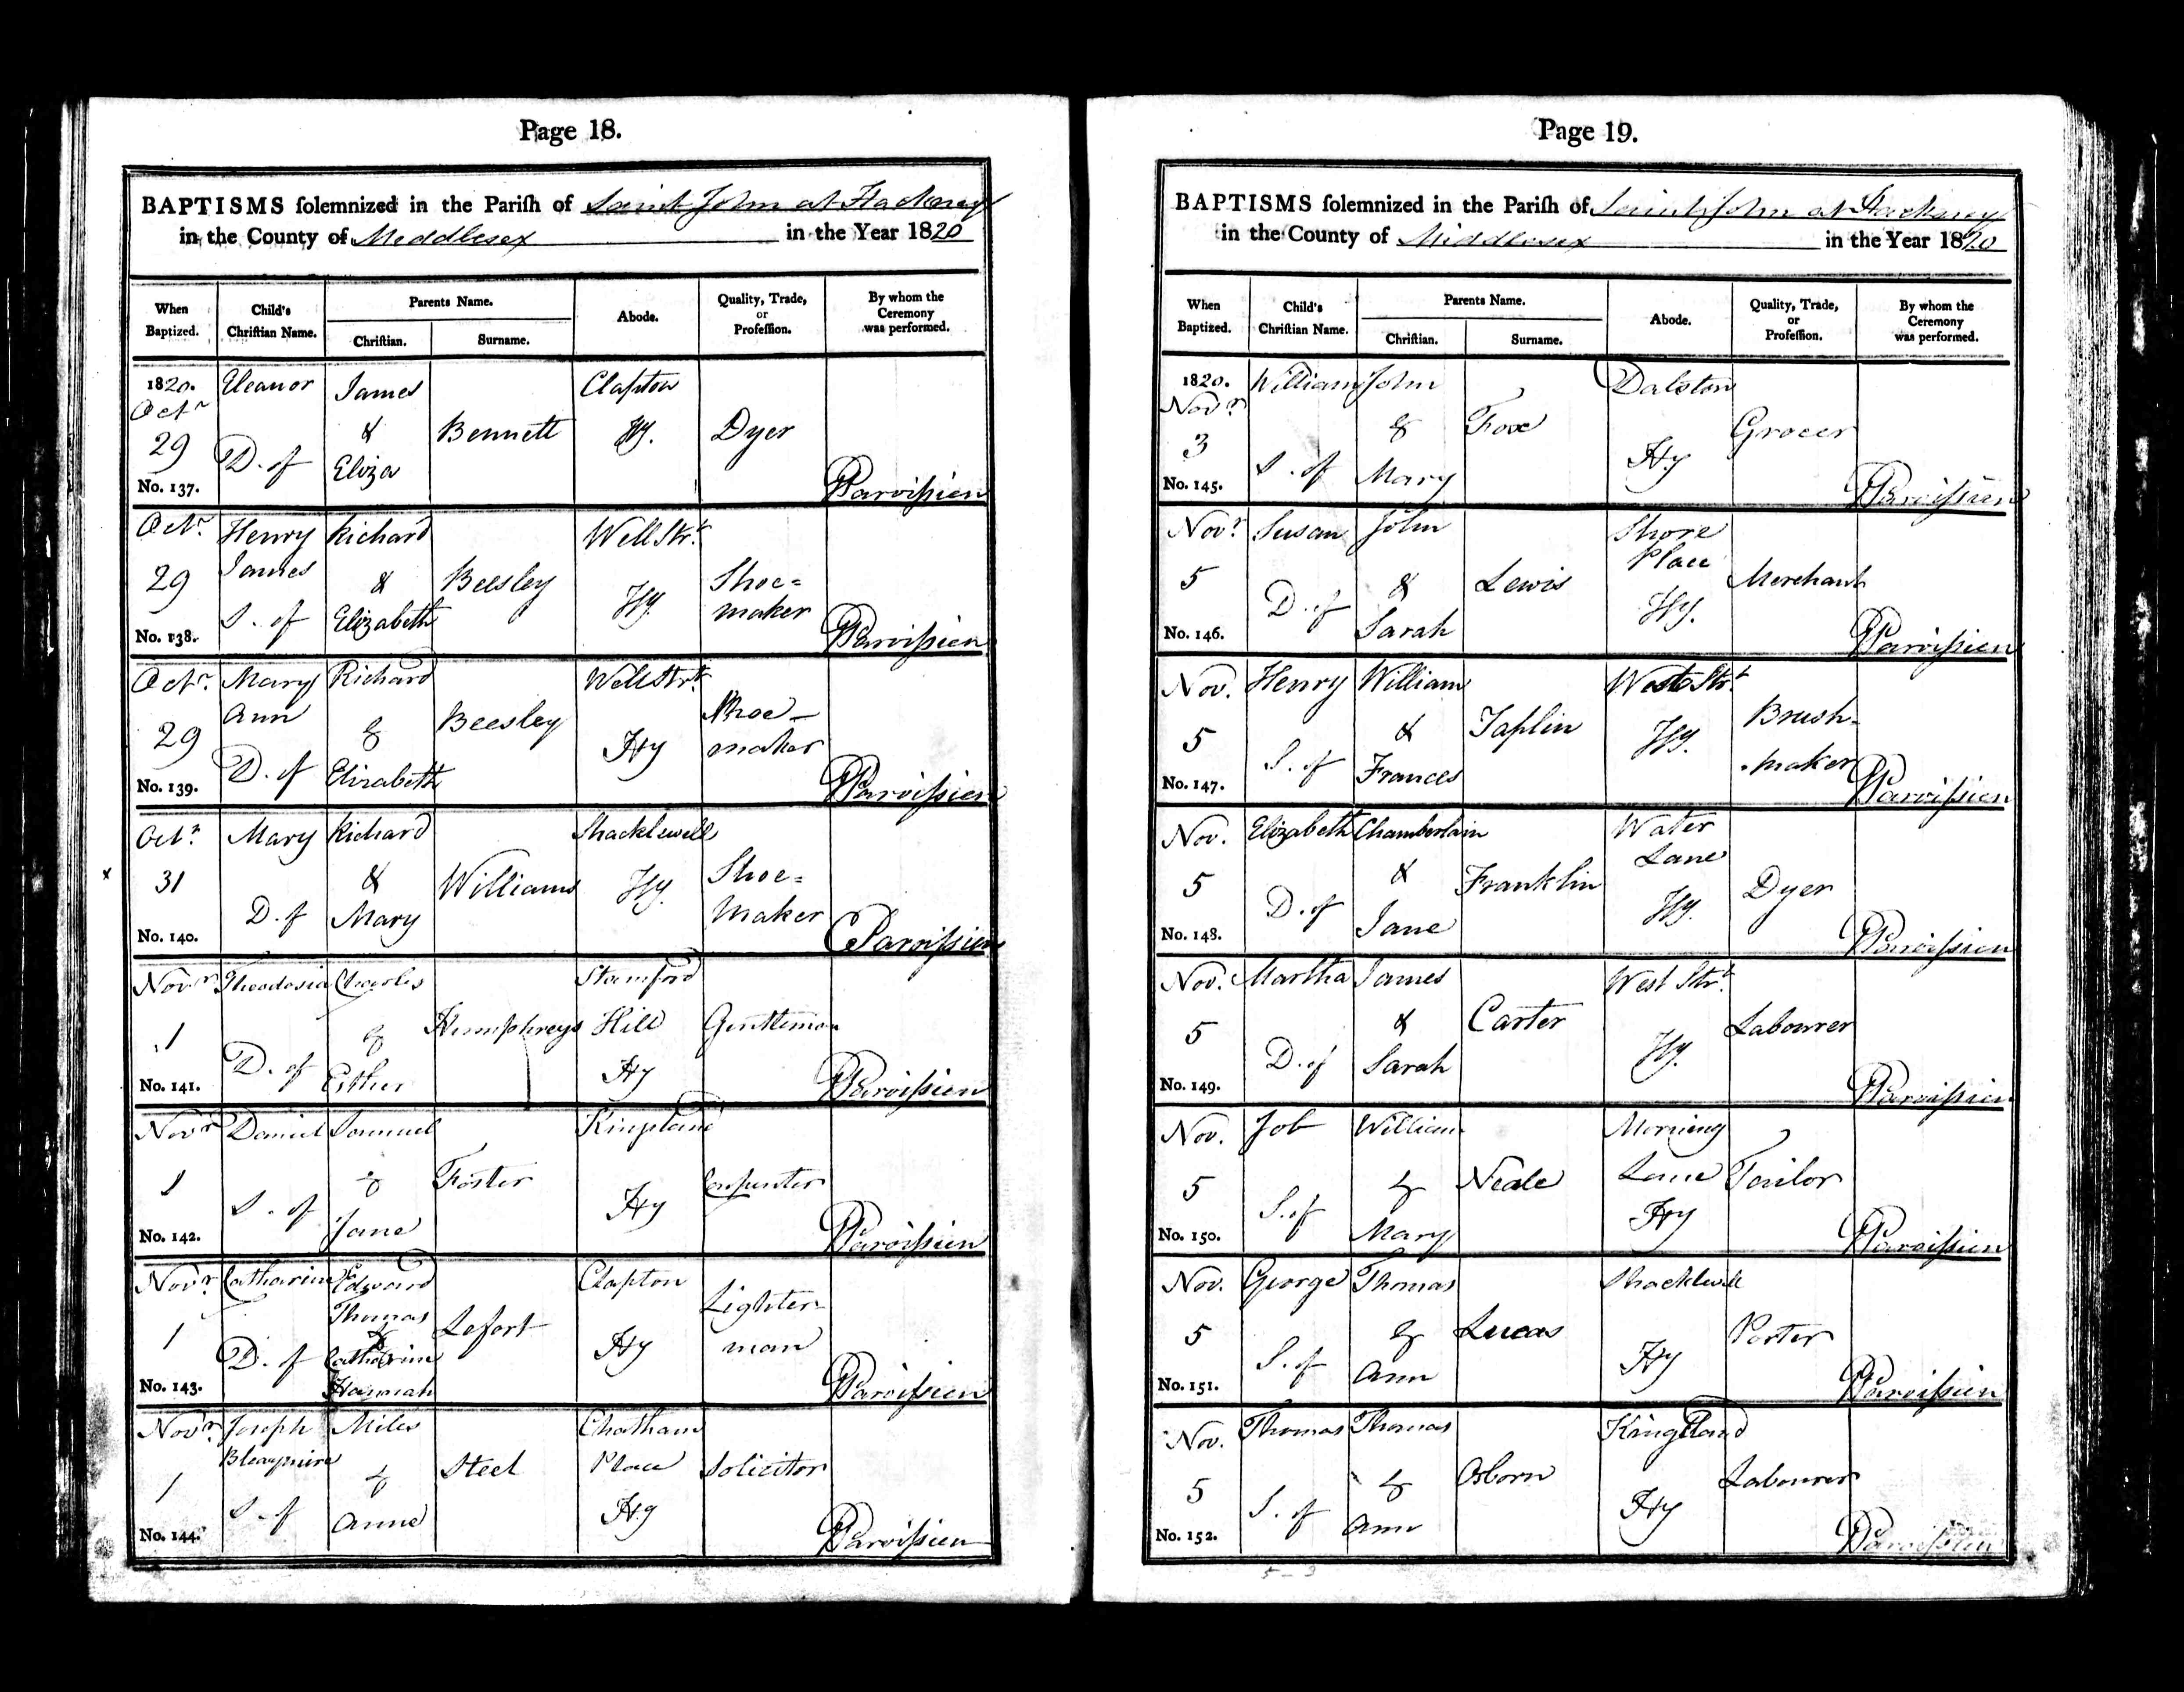 Page 18.
BAPTISMS ſolemnized in the Pariſh of Saint John at Hackney
in the County of Middlesex in the Year 1820
When Baptized. Child's Chriſtian Name. Parents Name. Chriſtian. Surname. Abode. Quality, Trade, or Profeſſion. By whom the Ceremony was performed.
1820. Eleanor James Clapton
Octr
& Bennett Hy. Dyer
29 D. of Eliza
No. 137. Parviſsien
Octr. Henry Richard Well Strt.
James
29 & Beesley Hy. Shoe=
S. of Elizabeth maker
No. 138. Parviſsien
Octr. Mary Richard Well Strt.
Ann Beesley Shoe-
29 & Hy maker
D. of Elizabeth
No. 139. Parviſsien
Octr. Mary Richard Shacklewell
x 31 & Williams Hy. Shoe=
D. of Mary Maker
No. 140. Parviſsien
Novr Theodosia Charles Stamford
1 & Humphreys Hill Gentleman
D. of Esther Hy
No. 141. Parviſsien
Novr Daniel Samuel Kingsland
1 & Foster Carpenter
S. of Jane Hy
No. 142. Parviſsien
Novr. Catharine Edward Clapton
Thomas Lefort Lighter-
1 & man
D. of Catharine Hy
Hannah
No. 143. Parviſsien
Novr. Joseph Miles Chatham
1 & Steel Place Solicitor
S. of Anne Hy
No. 144. Parviſsien
Page 19.
BAPTISMS ſolemnized in the Pariſh of Saint John at Hackney
in the County of Middlesex in the Year 1820
When Baptized. Child's Chriſtian Name. Parents Name. Chriſtian. Surname. Abode. Quality, Trade, or Profeſſion. By whom the Ceremony was performed.
1820. William John Dalston
Novr
& Fox Grocer
3 S. of Mary Hy
No. 145. Parviſsien
Novr. Susan John Shore
Place
5 & Lewis Merchant
D. of Sarah Hy.
No. 146. Parviſsien
Nov. Henry William West Strt
5 & Taplin Hy. Brush-
S. of Frances -maker
No. 147. Parviſsien
Nov. Elizabeth Chamberlain Water
Lane
5 & Franklin Dyer
D. of Jane Hy.
No. 148. Parviſsien
Nov. Martha James West Strt.
5 & Carter Labourer
D. of Sarah Hy.
No. 149. Parviſsien
Nov. Job William Morning
5 & Neale Lane Tailor
S. of Mary Hy
No. 150. Parviſsien
Nov. George Thomas Shacklewell
5 & Lucas Porter
S. of Ann Hy
No. 151. Parviſsien
Nov. Thomas Thomas Kingsland
5 & Osborn Labourer
S. of Ann Hy
No. 152. Parviſsien